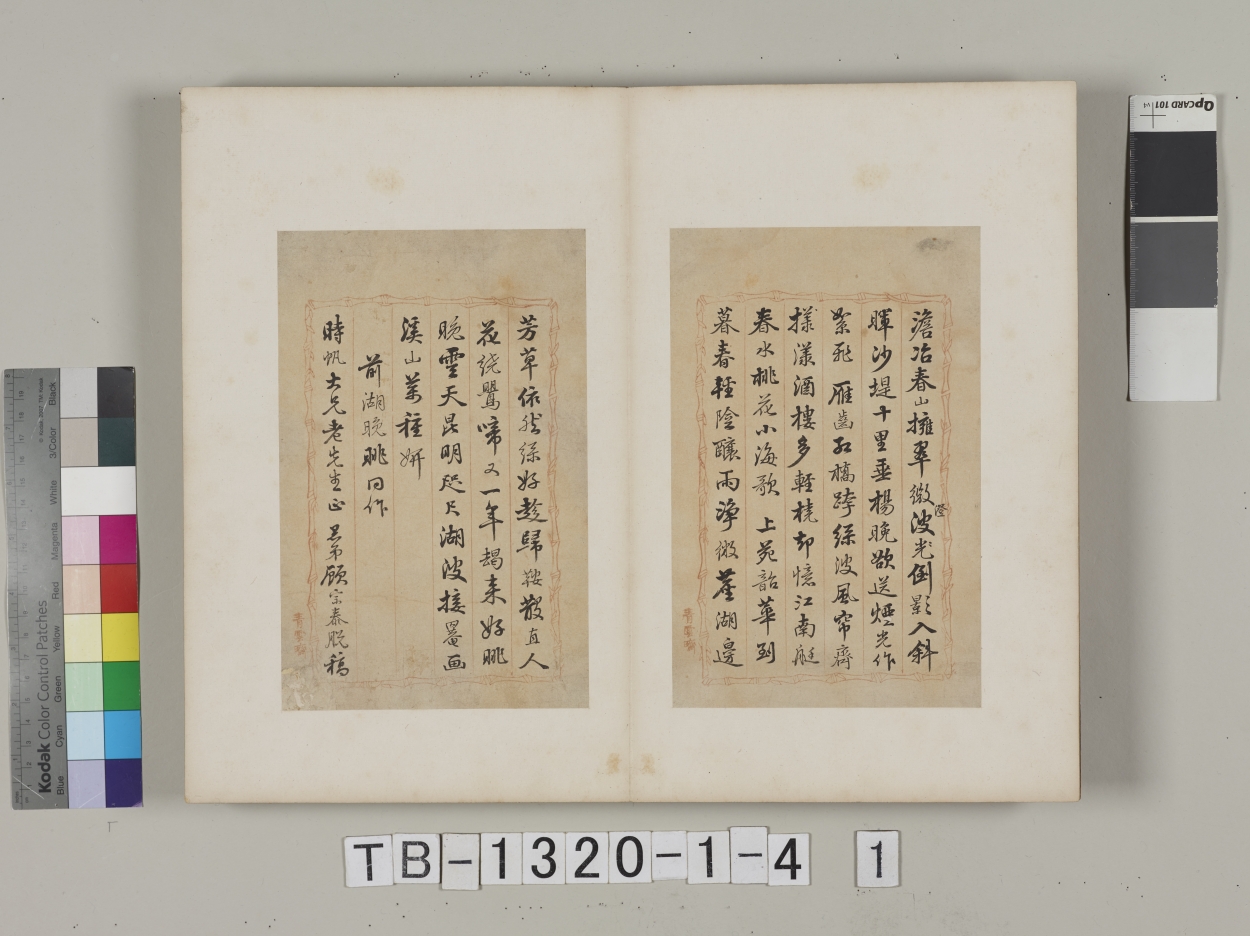 澹冶春山擁翠微波光倒影入斜
澄
暉沙堤十里垂楊晚欲送煙光作
絮飛 雁齒紅橋跨綠波風帘齊
揚漾酒樓多輕橈却憶江南艇
春水桃花小海歌 上苑韶華到
暮春輕陰釀雨淨微塵湖邊
芳草依然綠好趁歸鞍散直人
花繞鶯啼又一年朅来好眺
晚雲天昆明咫尺湖波接罨画
溪山萬種妍
前湖晚眺同作
時帆大兄老先生正 呈弟顧宗泰脫稿
Kodak Color Control Patches
Blue
Cyan
Green
Yellow
Red
Magenta
White
3/Color
Black
QpCARD 101
TB-1320-1-4 1